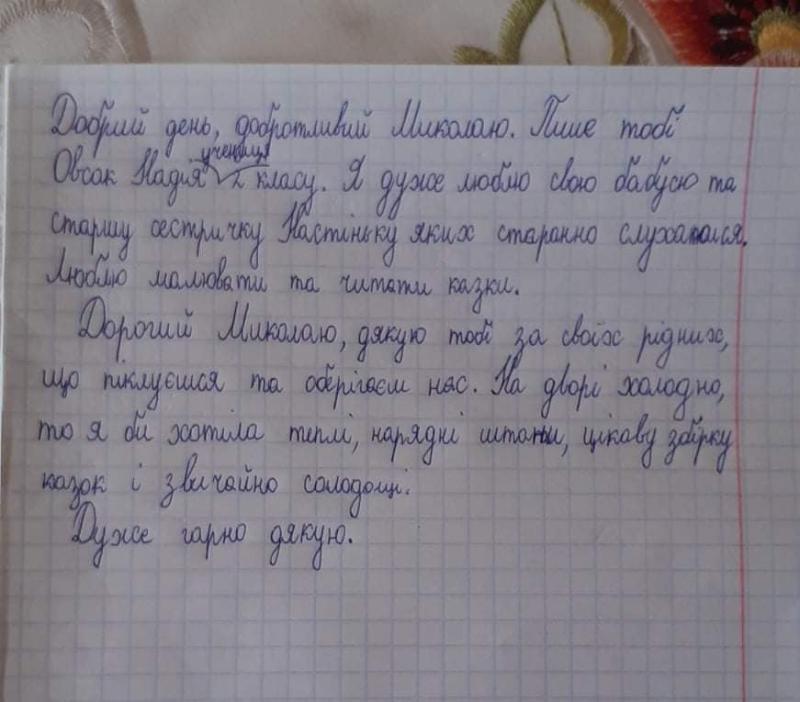 Добрий день, добротливий Миколаю. Пише тобі
учениця
Овсак Надія 2 класу. Я дуже люблю свою бабусю та
старшу сестричку Настіньку яких старанно слухаюся.
Люблю малювати та читати казки.
Дорогий Миколаю, дякую тобі за своїх рідних,
що піклуєшся та оберігаєш нас. На дворі холодно,
то я би хотіла теплі, нарядні штани, цікаву збірку
казок і звичайно солодощі.
Дуже гарно дякую.